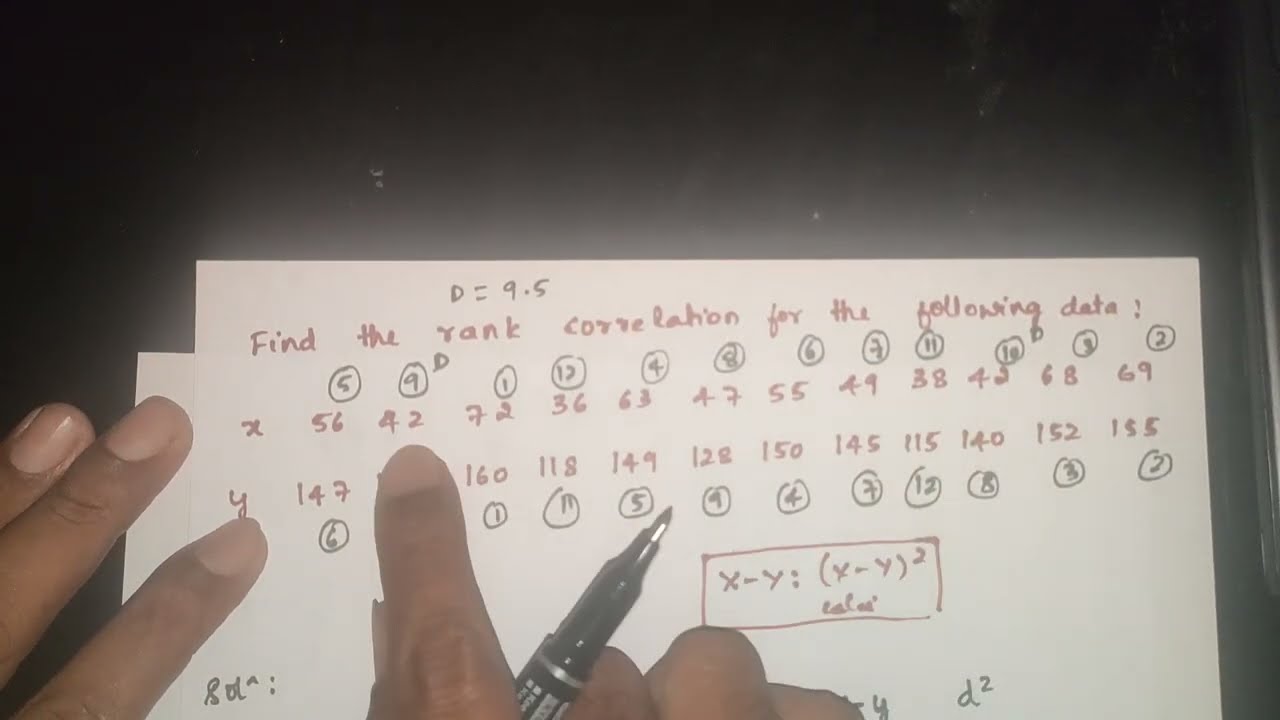 D = 9.5
Find the rank correlation for the following data:
5 9 D 1 12 4 8 6 7 11 10 D 3 2
x 56 42 72 36 63 47 55 49 38 42 68 69
y 147 160 118 149 128 150 145 115 140 152 155
6 1 11 5 9 4 7 12 8 3 2
X-Y: (X-Y)²
Solⁿ:
-y d²